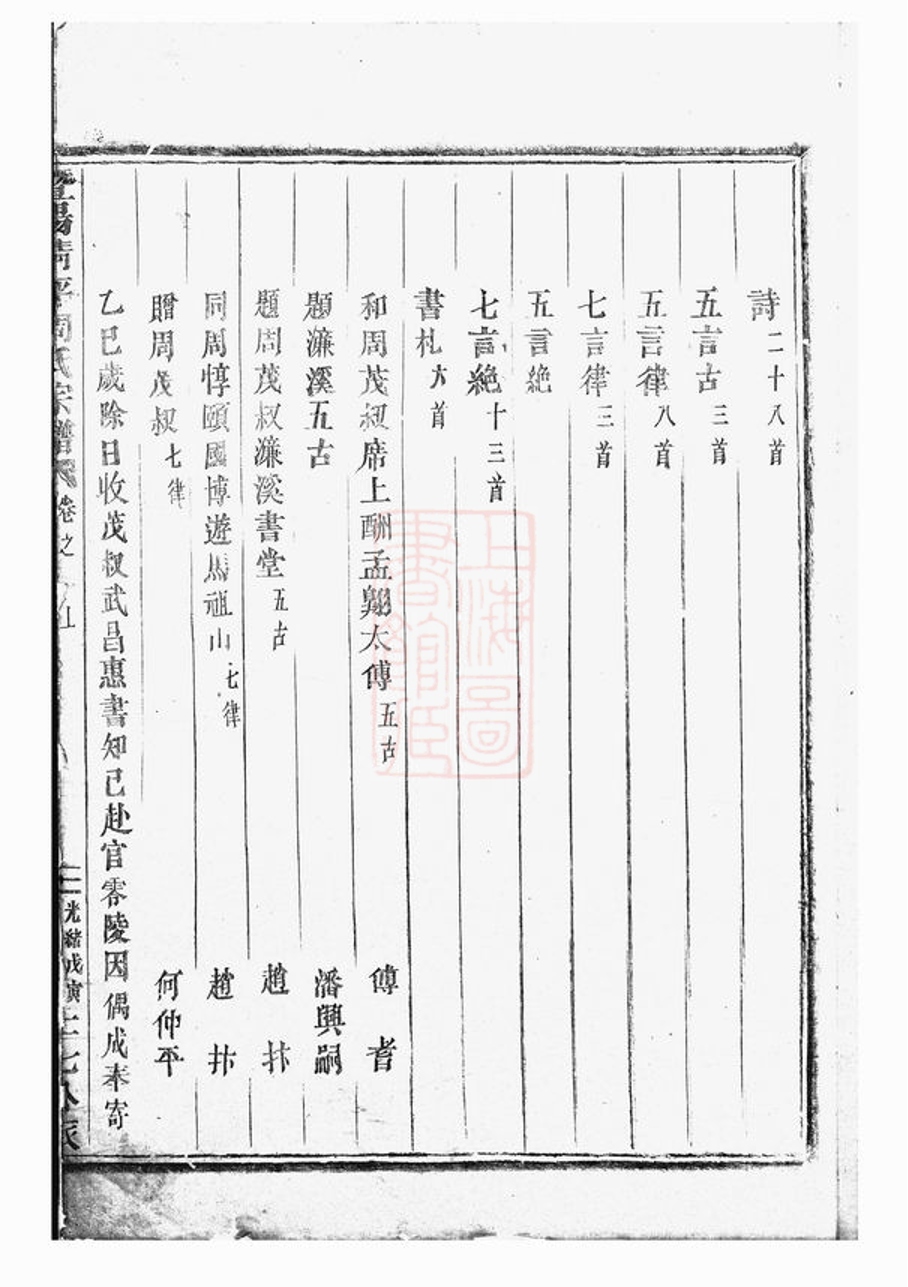 詩二十八首
五言古三首
五言律八首
七言律三首
五言絶
七言絶十三首
書札六首
和周茂叔席上酬孟翱太傅五古 傅耆
題濂溪五古 潘興嗣
題周茂叔濂溪書堂五古 趙抃
同周惇頤國博遊馬祖山七律 趙抃
贈周茂叔七律 何仲平
乙巳歲除日收茂叔武昌惠書知已赴官零陵因偶成奉寄
暨陽清平周氏宗譜 卷之 光緒戊寅
上海圖書館藏